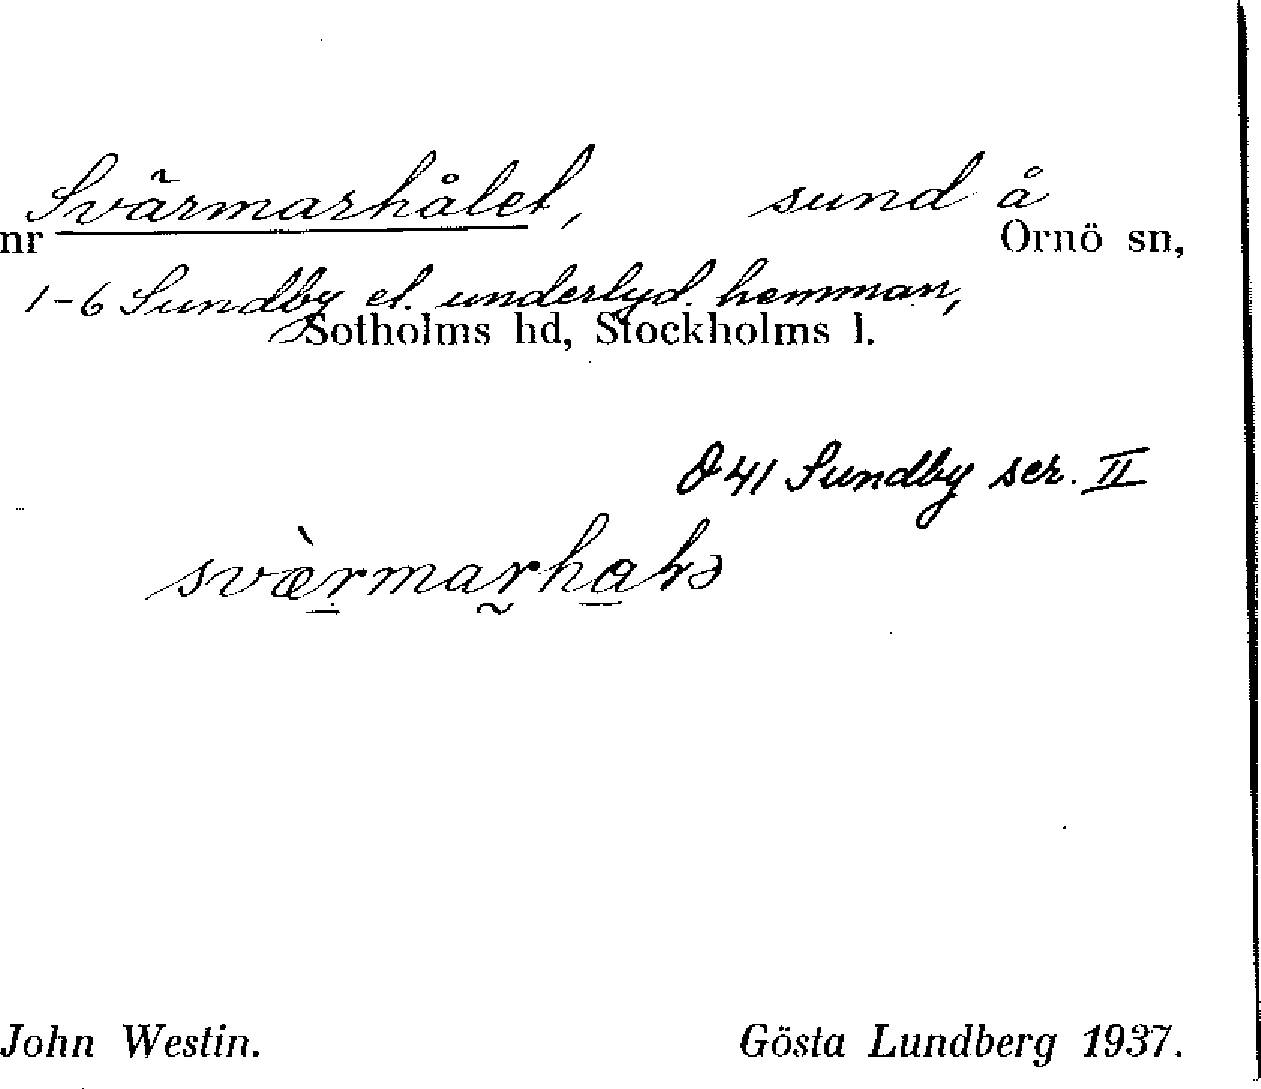 Svärmarhålet, sund å
nr Ornö sn,
1-6 Sundby el. underlyd. hemman,
Sotholms hd, Stockholms l.
041 Sundby ser. II
svæ̀rmarhaɫə
John Westin. Gösta Lundberg 1937.